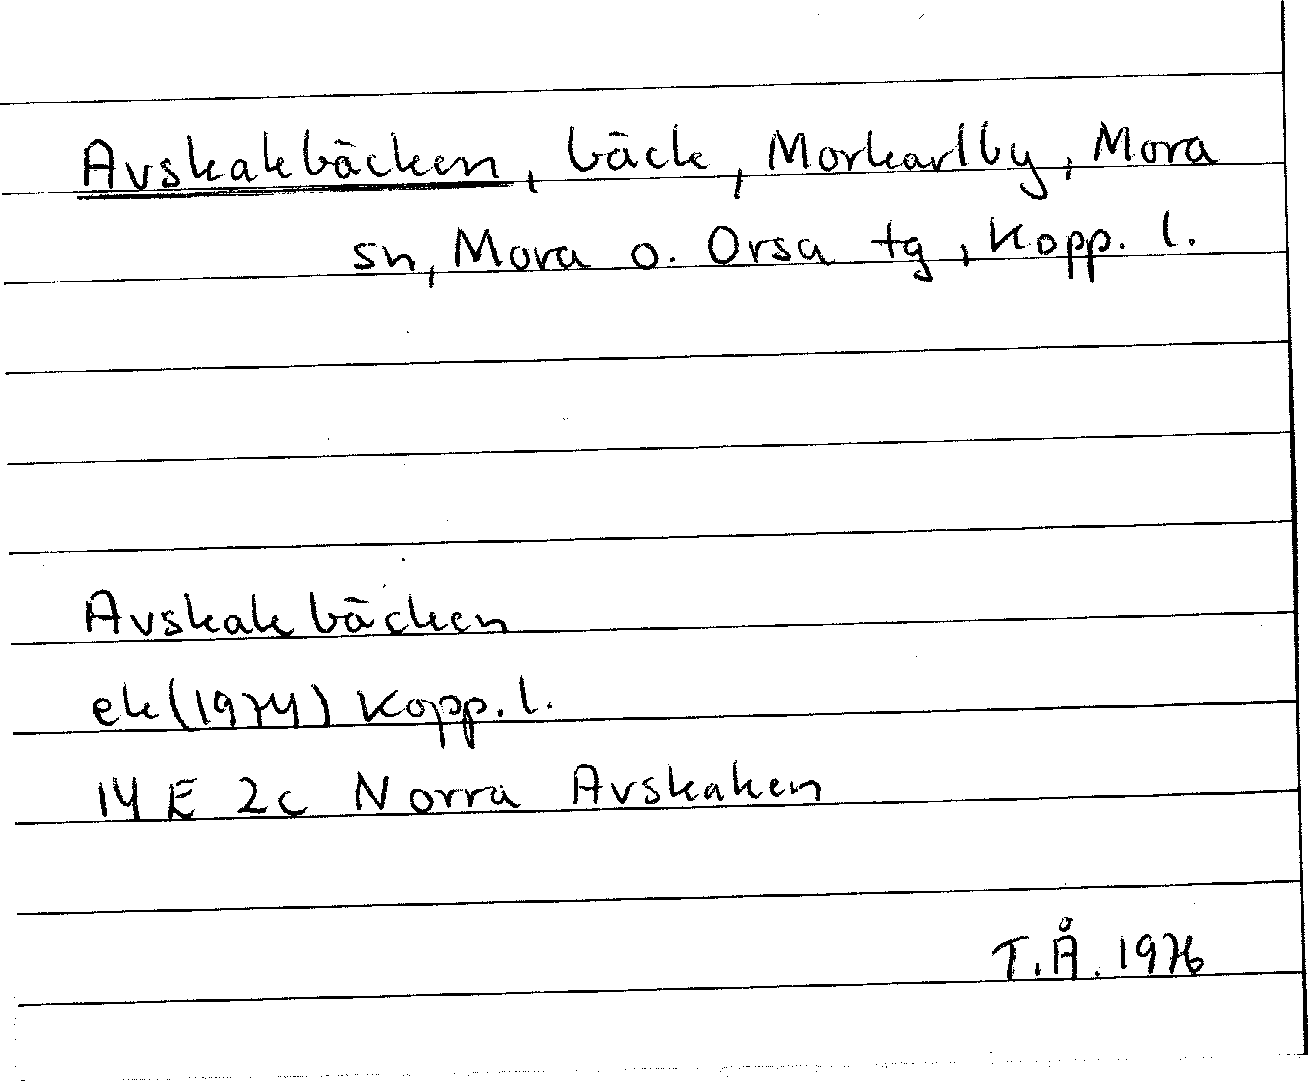 Avskakbäcken, bäck, Morkarlby, Mora
sn, Mora o. Orsa tg, Kopp. l.
Avskakbäcken
ek (1974) Kopp. l.
14 E 2c Norra Avskaken
T.Å. 1976